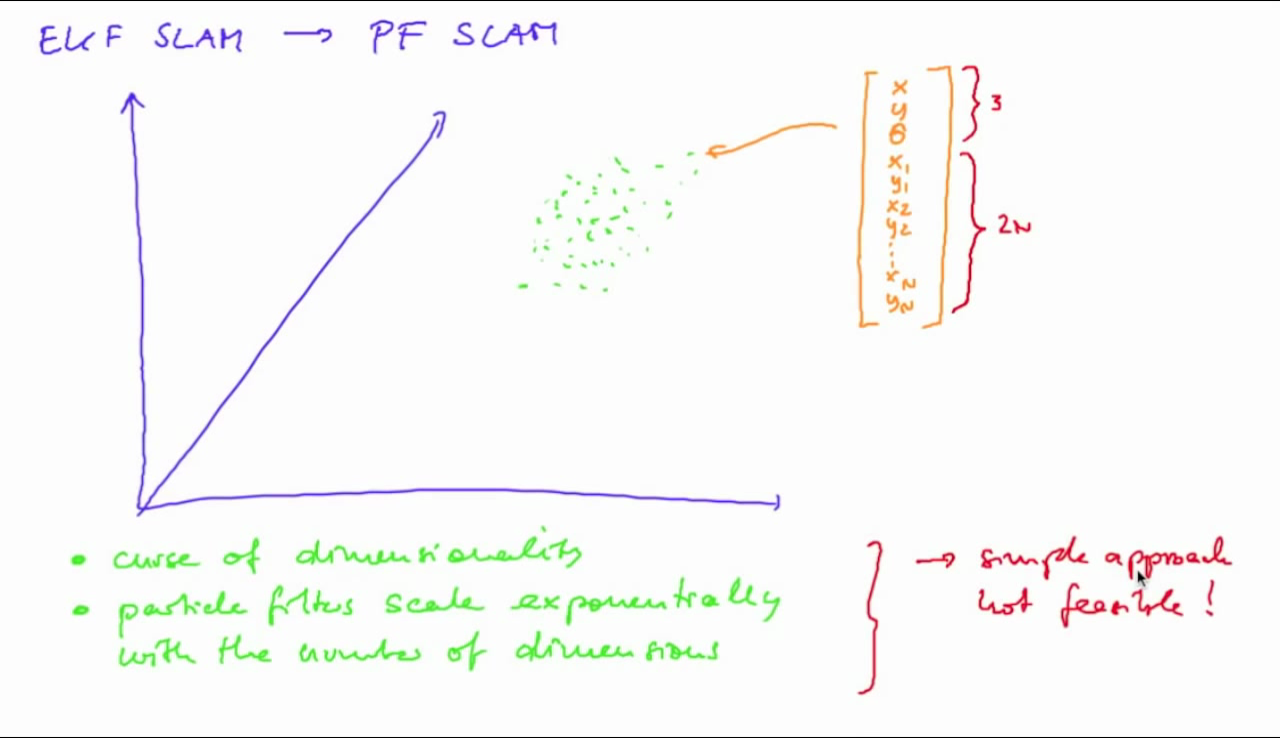 EKF SLAM → PF SLAM
x
y
θ
x₁
y₁
x₂
y₂
⋮
x_N
y_N
3
2N
• curse of dimensionality
• particle filters scale exponentially
with the number of dimensions
→ simple approach
not feasible!